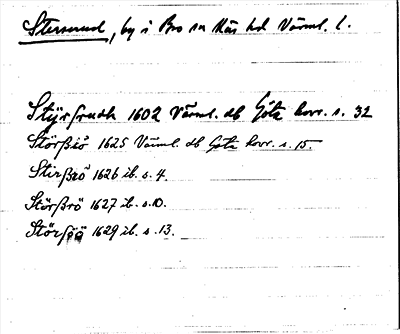 Stersrud, by i Bro sn Näs hd Värml. l.
Styrsrudh 1602 Värml. db Götz kovr. s. 32
Störßiö 1625 Värml. db Götz kovr. s. 15.
Stirßrö 1626 ib. s. 4.
Störßrö 1627 ib. s. 10.
Störßiö 1629 ib. s. 13.